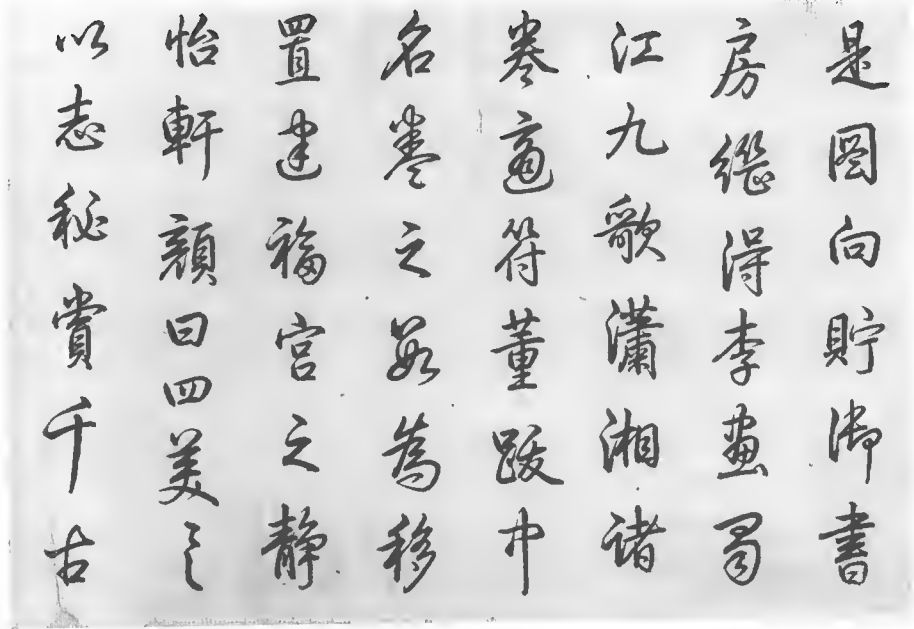 是圖向貯御書
房繼得李畫蜀
江九歌瀟湘諸
卷適符董跋中
名卷之數為移
置建福宮之靜
怡軒顏曰四美之
以志秘賞千古